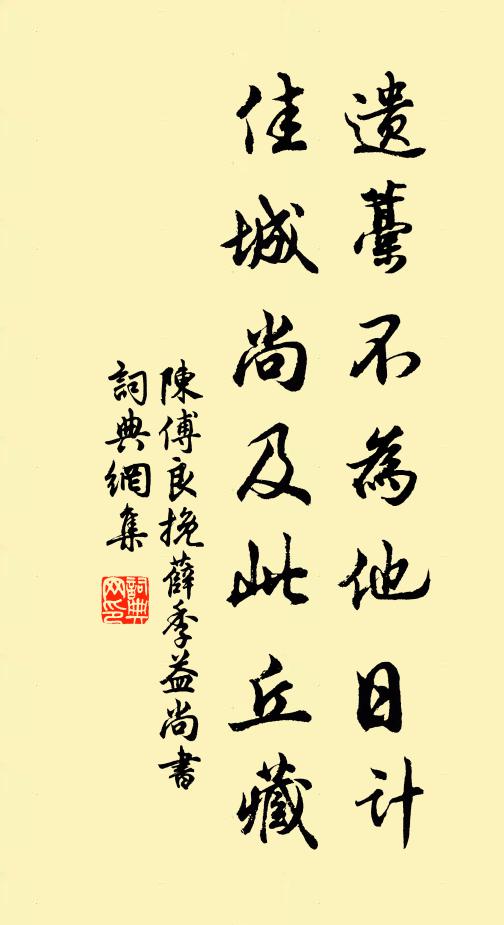 遺藁不為他日計
佳城尚及此丘藏
陳傅良挽薛季益尚書
詞典網集
詞典網印